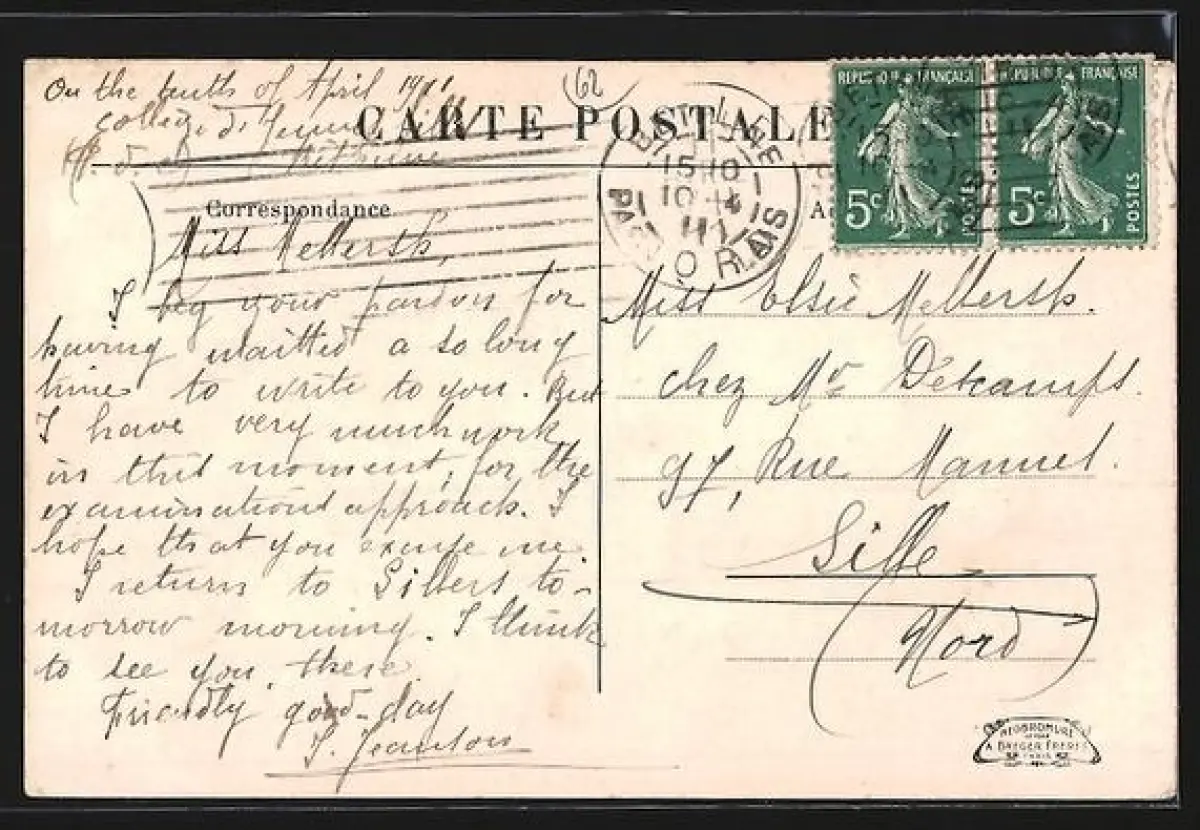 On the tenths of April 1911
College de jeunes filles
Béthune
(62)
CARTE POSTALE
Correspondance
Miss Mellersh,
I beg your pardon for
having waitted a so long
time to write to you. But
I have very much work
in this moment, for the
examinations approach. I
hope that you excuse me.
I return to Lillers to-
morrow morning. I think
to see you there.
Friendly good-day
J. Jeanson
BETHUNE
15 10
10 -4
11
PAS
RÉPUBLIQUE FRANÇAISE
5c
POSTES
RÉPUBLIQUE FRANÇAISE
5c
POSTES
Miss Elsie Mellersh.
chez Mr Détcamps.
97, Rue Manuel.
Lille
Nord
NEOBROMURE
A. BREGER FRERES
PARIS